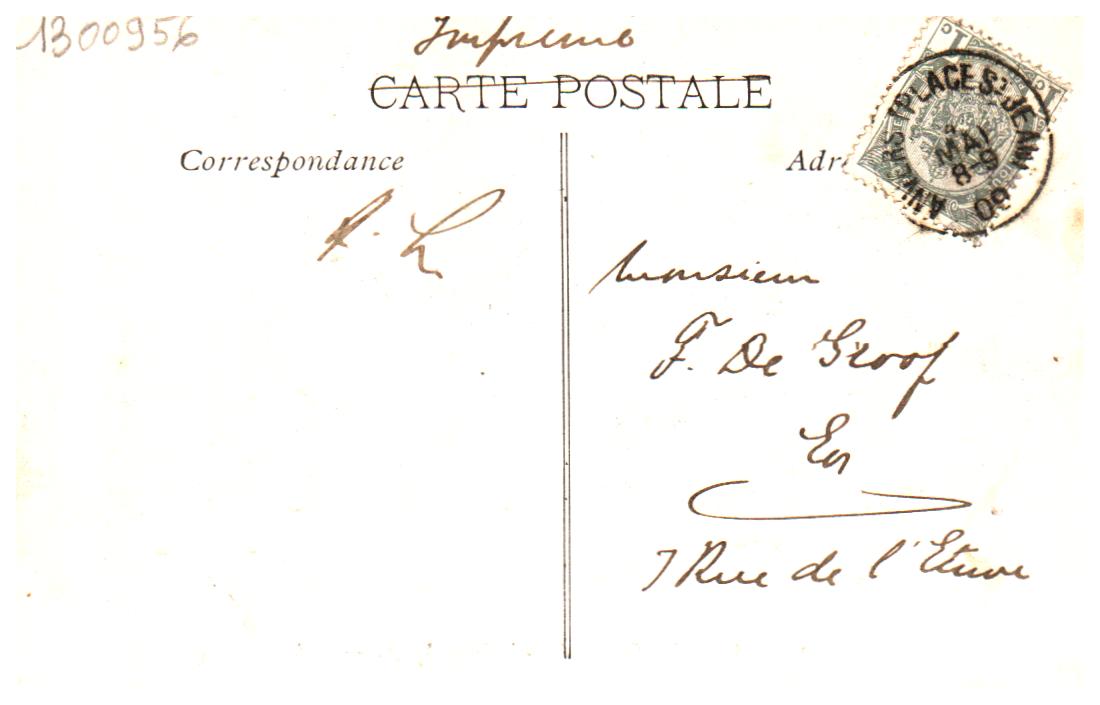 1300956
Imprimé
CARTE POSTALE
Correspondance
Adr
ANVERS (PLACE ST JEAN)
MAI
8-9
09
1c
Monsieur
F. De Groof
7 Rue de l'Etuve